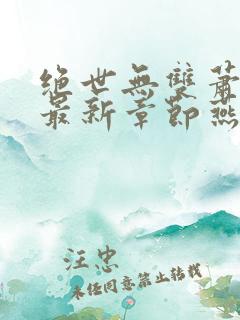 绝世無雙蕭
最新章節燕
汪忠
未经同意禁止转载